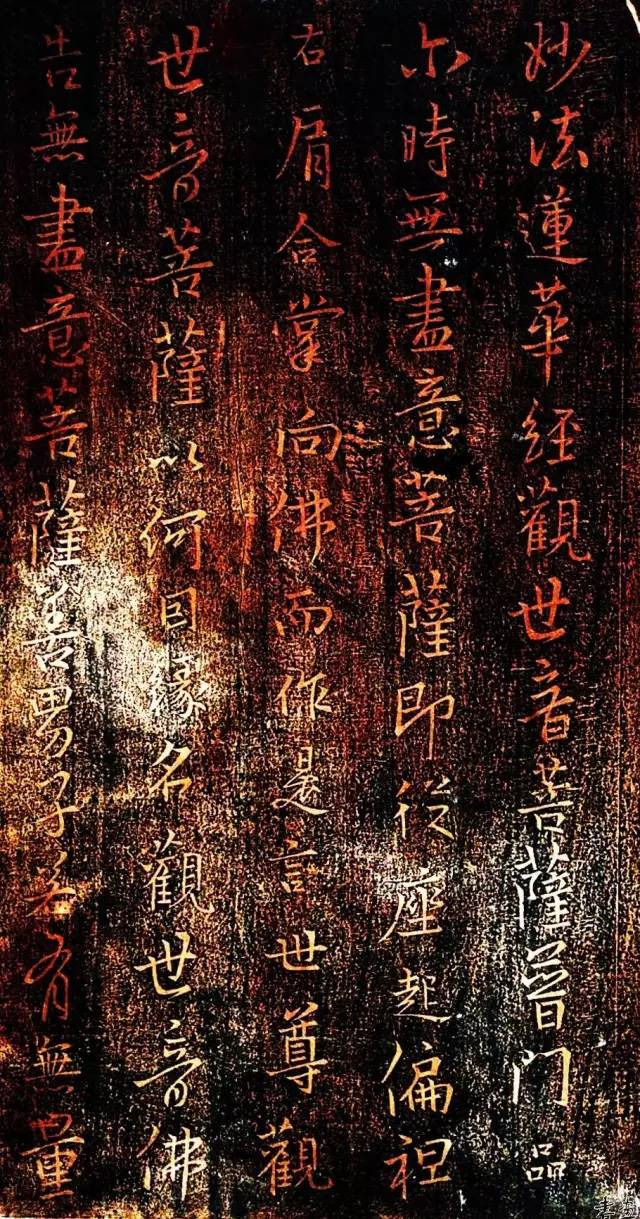 妙法蓮華經觀世音菩薩普門品
尒時無盡意菩薩即從座起偏袒
右肩合掌向佛而作是言世尊觀
世音菩薩以何因緣名觀世音佛
告無盡意菩薩善男子若有無量